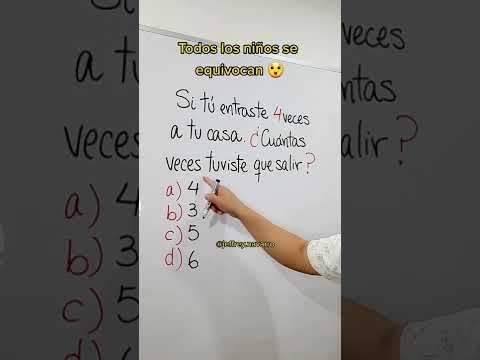 Todos los niños se
equivocan 😲
Si tú entraste 4 veces
a tu casa. ¿Cuántas
veces tuviste que salir?
a) 4
b) 3
c) 5
d) 6
@jeffrey.navarro